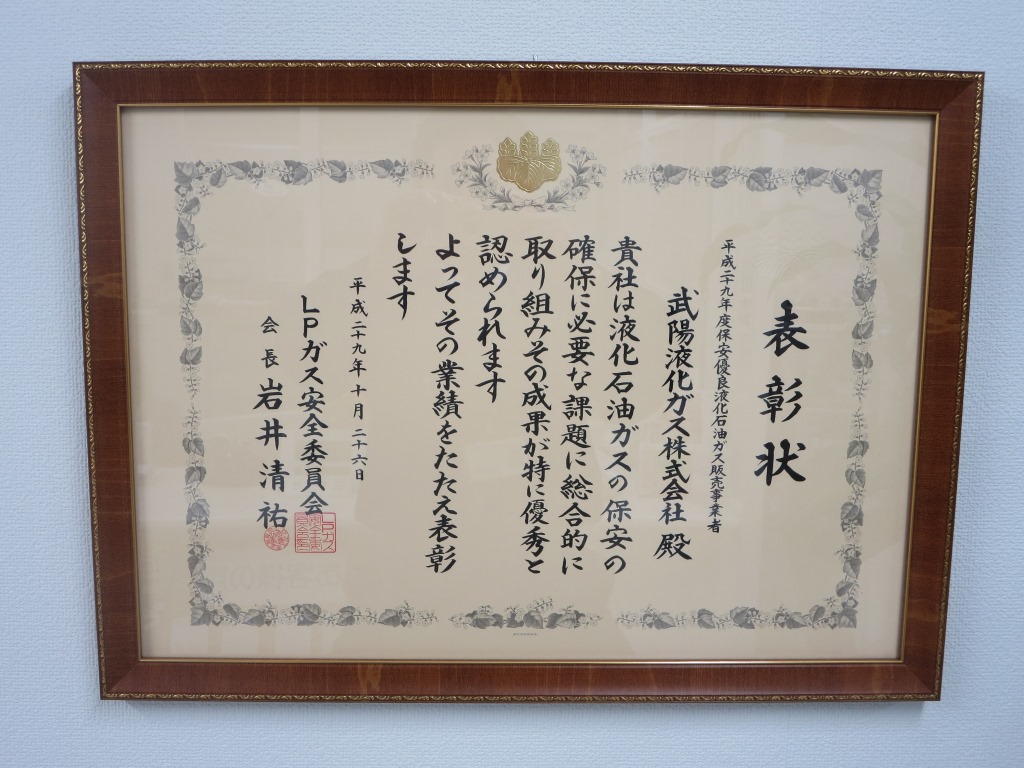 表彰状
平成二十九年度保安優良液化石油ガス販売事業者
武陽液化ガス株式会社 殿
貴社は液化石油ガスの保安の
確保に必要な課題に総合的に
取り組みその成果が特に優秀と
認められます
よってその業績をたたえ表彰
します
平成二十九年十月二十六日
LPガス安全委員会
会長 岩井清祐